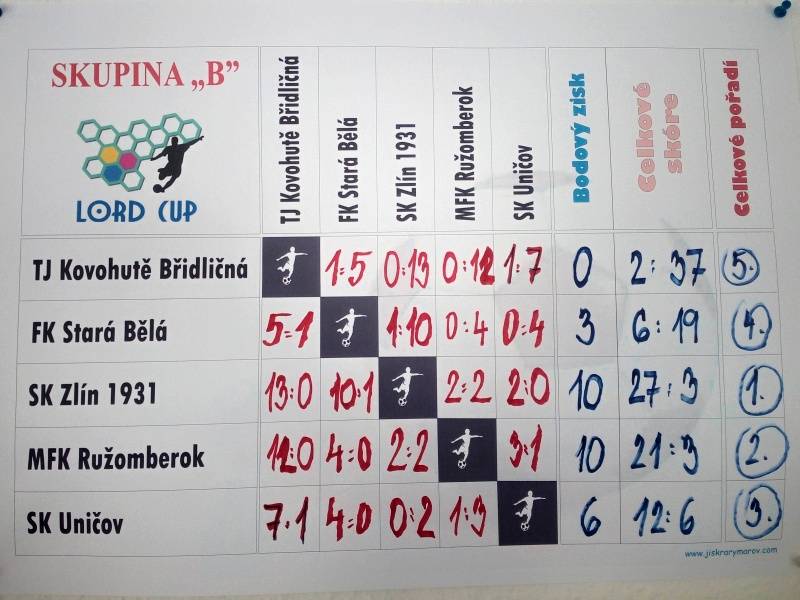 SKUPINA „B”
LORD CUP
TJ Kovohutě Břidličná
FK Stará Bělá
SK Zlín 1931
MFK Ružomberok
SK Uničov
Bodový zisk
Celkové skóre
Celkové pořadí
TJ Kovohutě Břidličná 1:5 0:13 0:12 1:7 0 2:37 5.
FK Stará Bělá 5:1 1:10 0:4 0:4 3 6:19 4.
SK Zlín 1931 13:0 10:1 2:2 2:0 10 27:3 1.
MFK Ružomberok 12:0 4:0 2:2 3:1 10 21:3 2.
SK Uničov 7:1 4:0 0:2 1:3 6 12:6 3.
www.jiskrarymarov.com